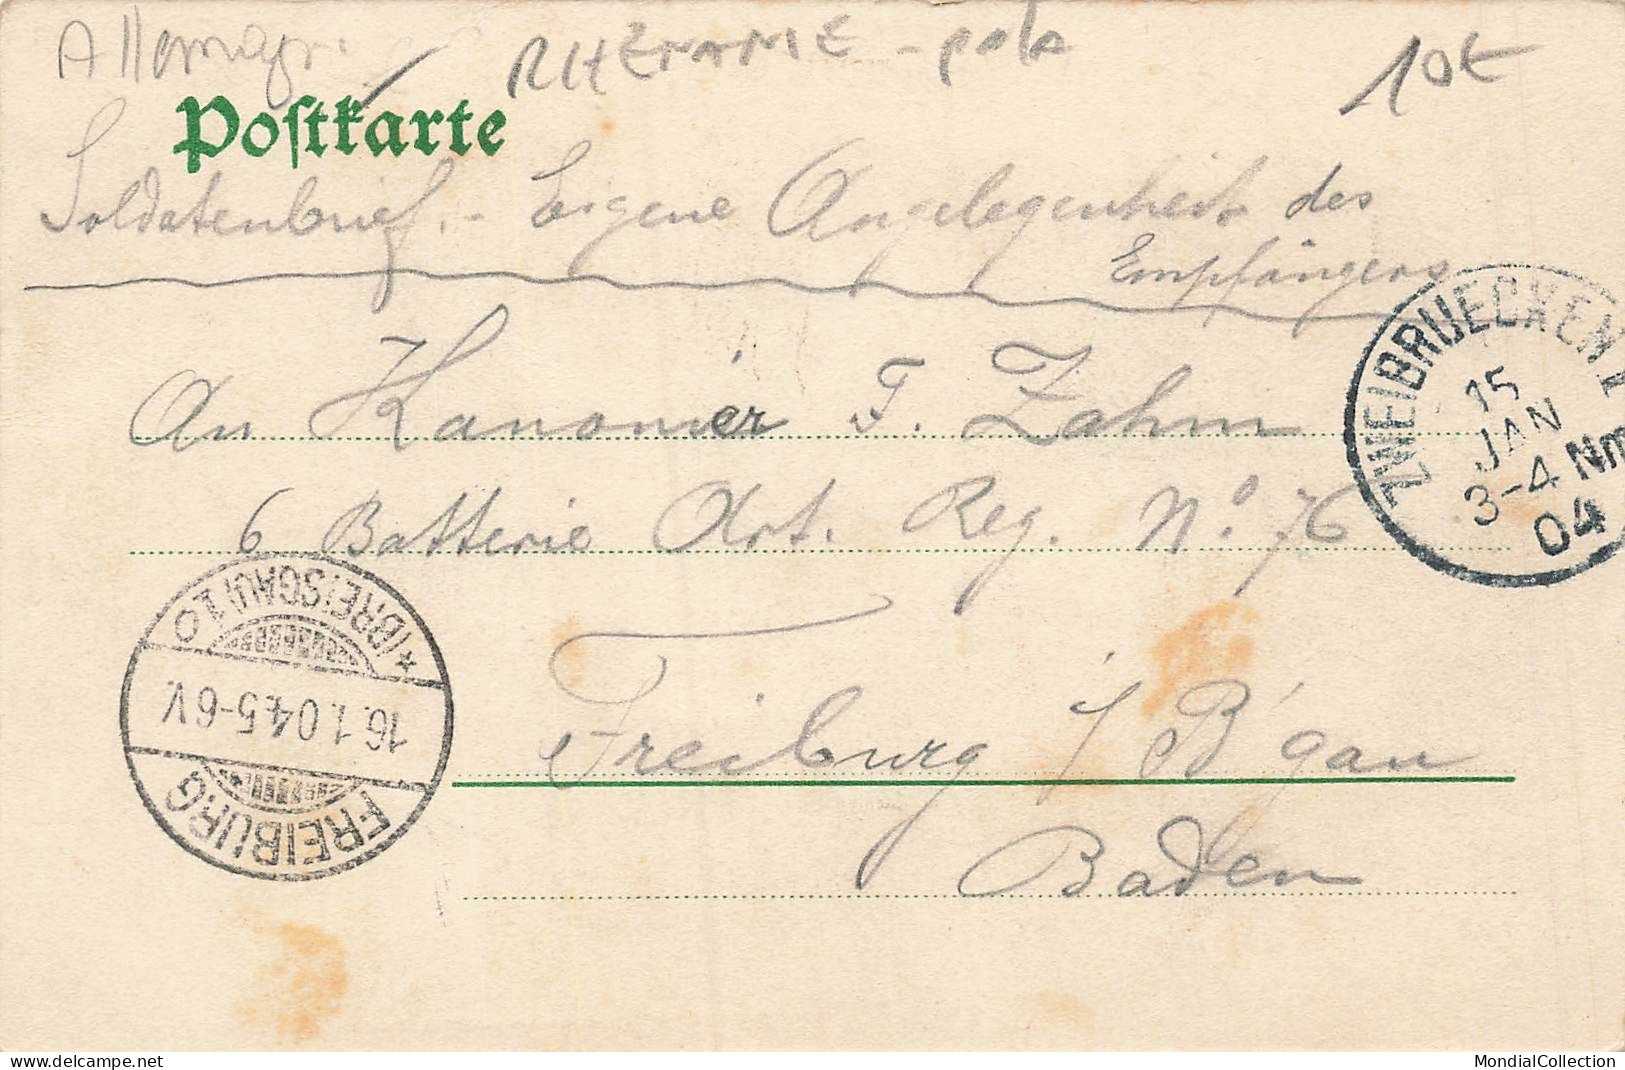 Allemagne RHÉNANIE - pola 10€
Postkarte
Soldatenbrief. - Eigene Angelegenheit des
Empfängers
An Kanonier F. Zahm
6 Batterie Art. Reg. No. 76
Freiburg i/ B'gau
Baden
ZWEIBRUECKEN 1
15
JAN
3-4 Nm
04
FREIBURG
16.1.04.5-6V.
*(BREISGAU)1 O
MondialCollection